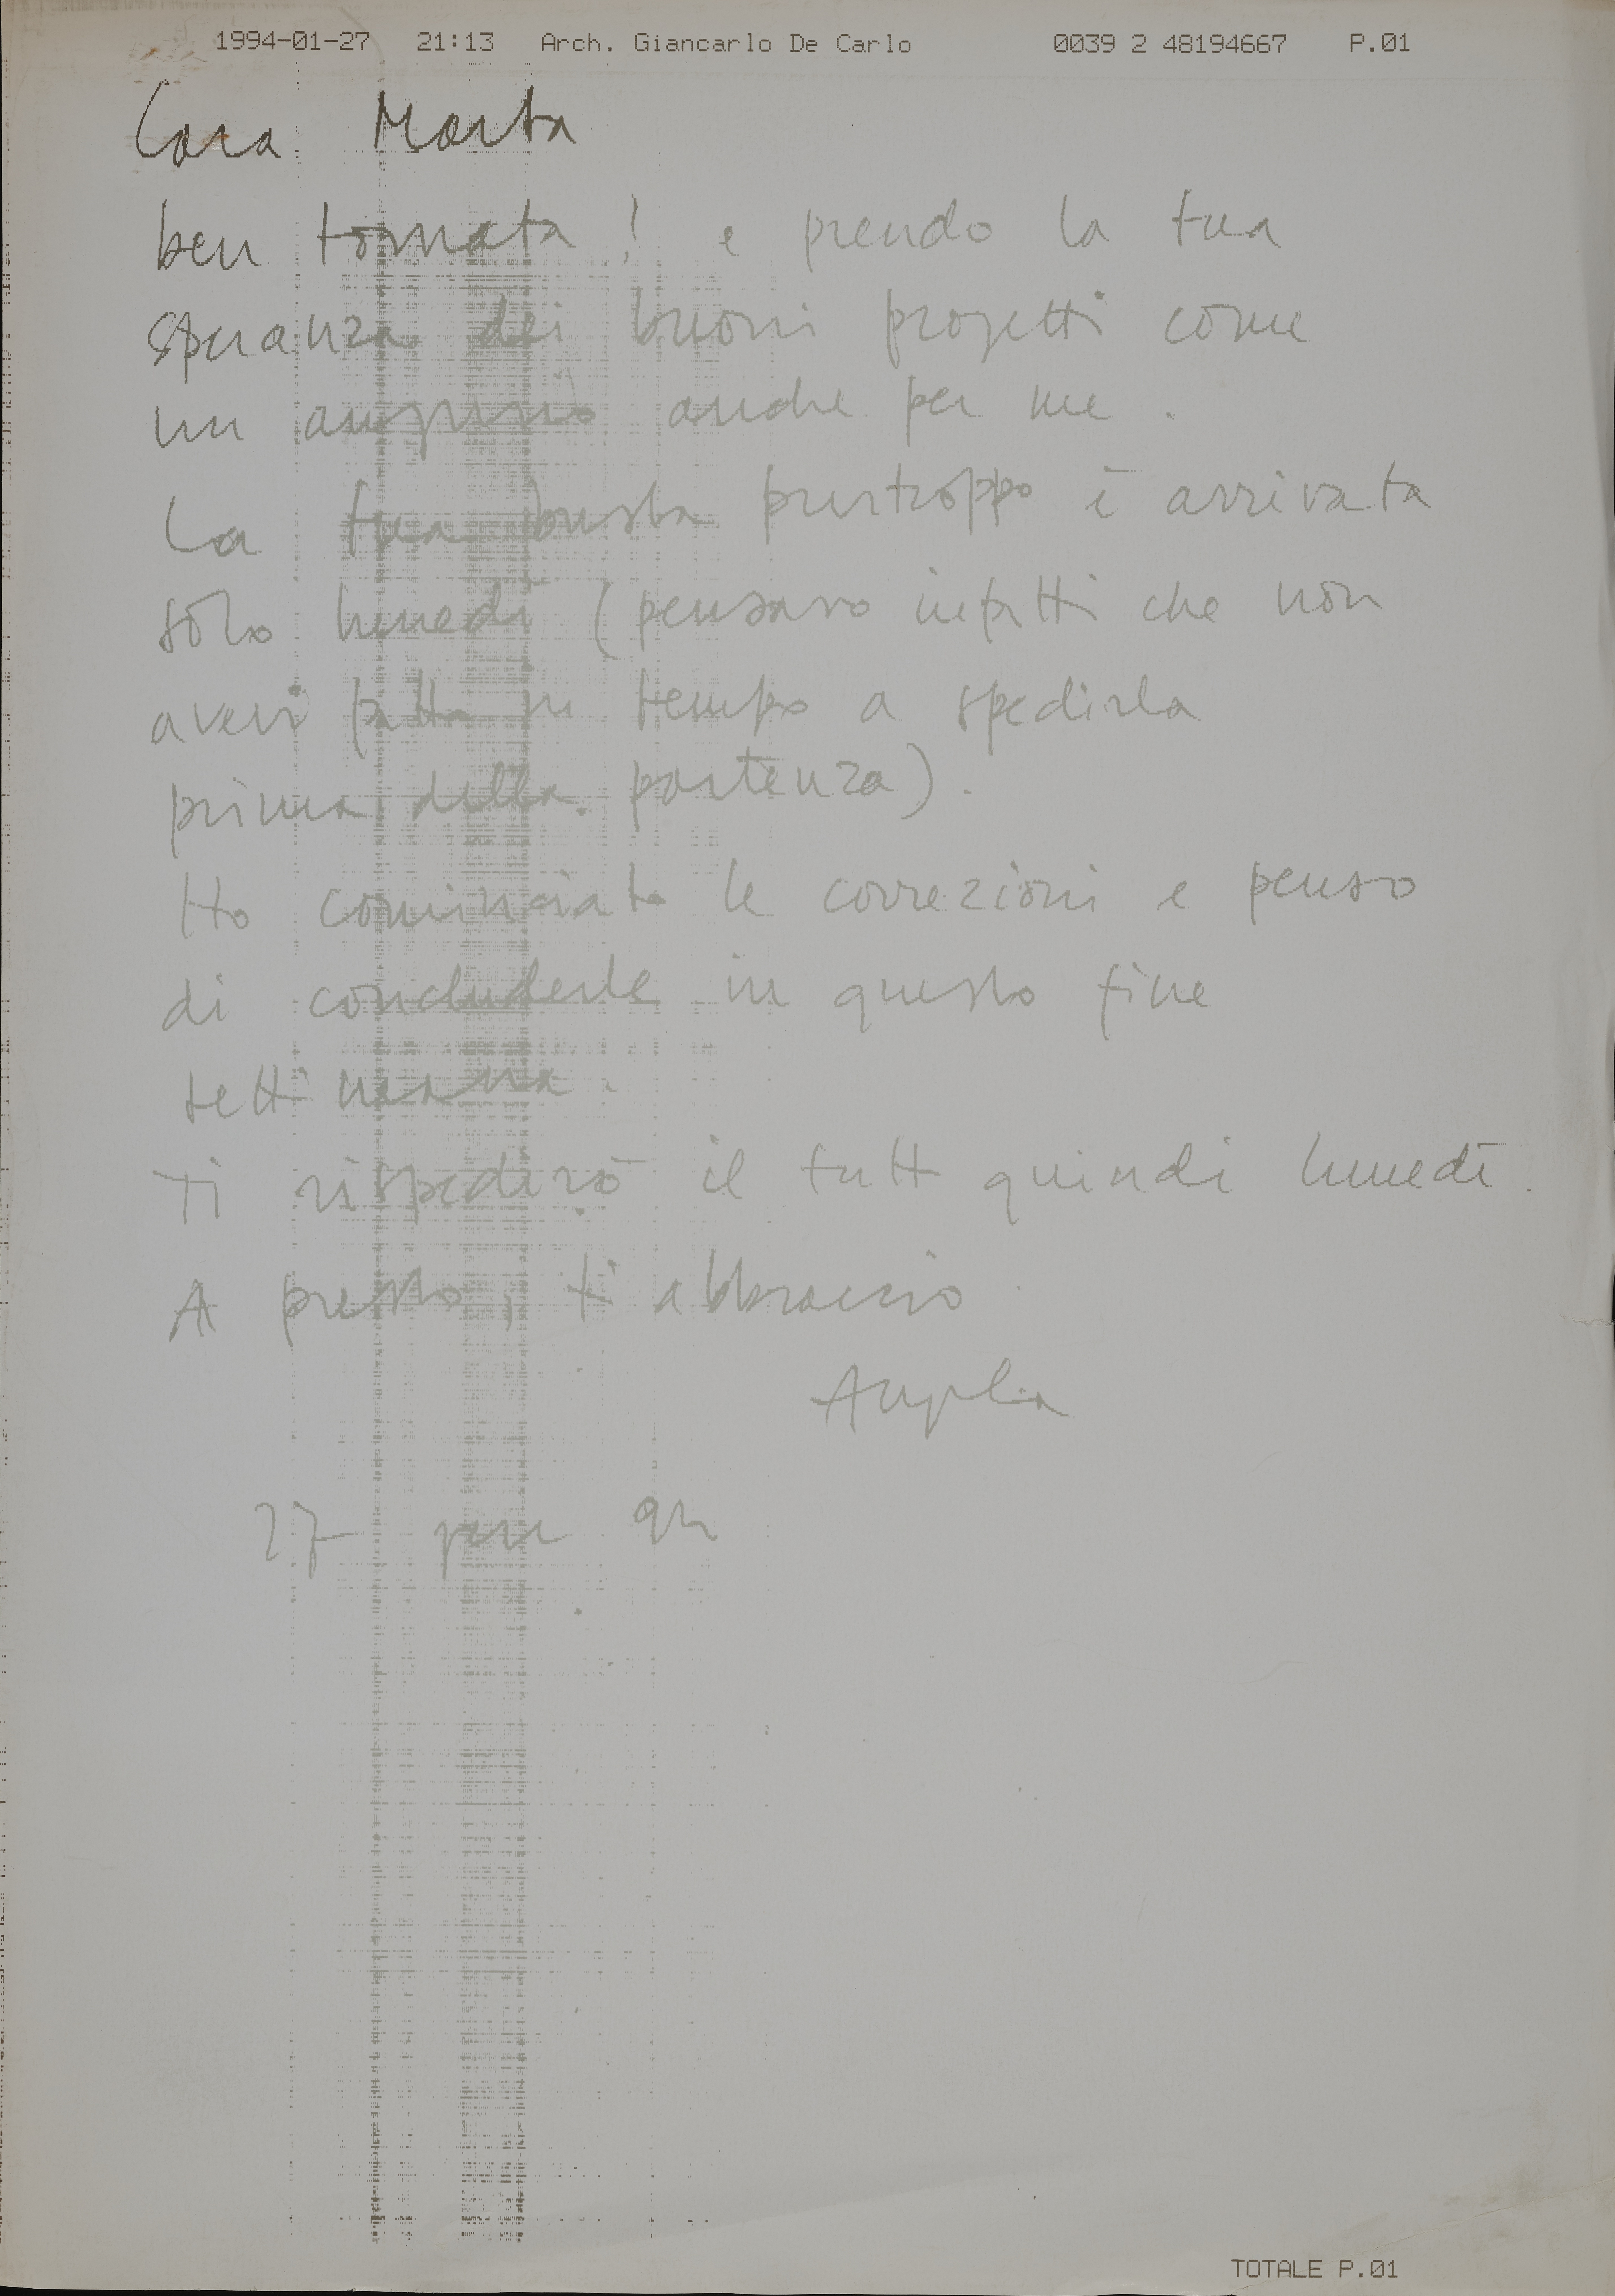 1994-01-27 21:13 Arch. Giancarlo De Carlo 0039 2 48194667 P.01
Cara Marta
ben tornata! e prendo la tua
speranza dei buoni progetti come
un augurio anche per me.
La tua busta purtroppo è arrivata
solo lunedì (pensavo infatti che non
avevi fatto in tempo a spedirla
prima della partenza).
Ho cominciato le correzioni e penso
di concluderle in questo fine
settimana.
Ti rispedirò il tutto quindi lunedì.
A presto, ti abbraccio.
27 94
TOTALE P.01